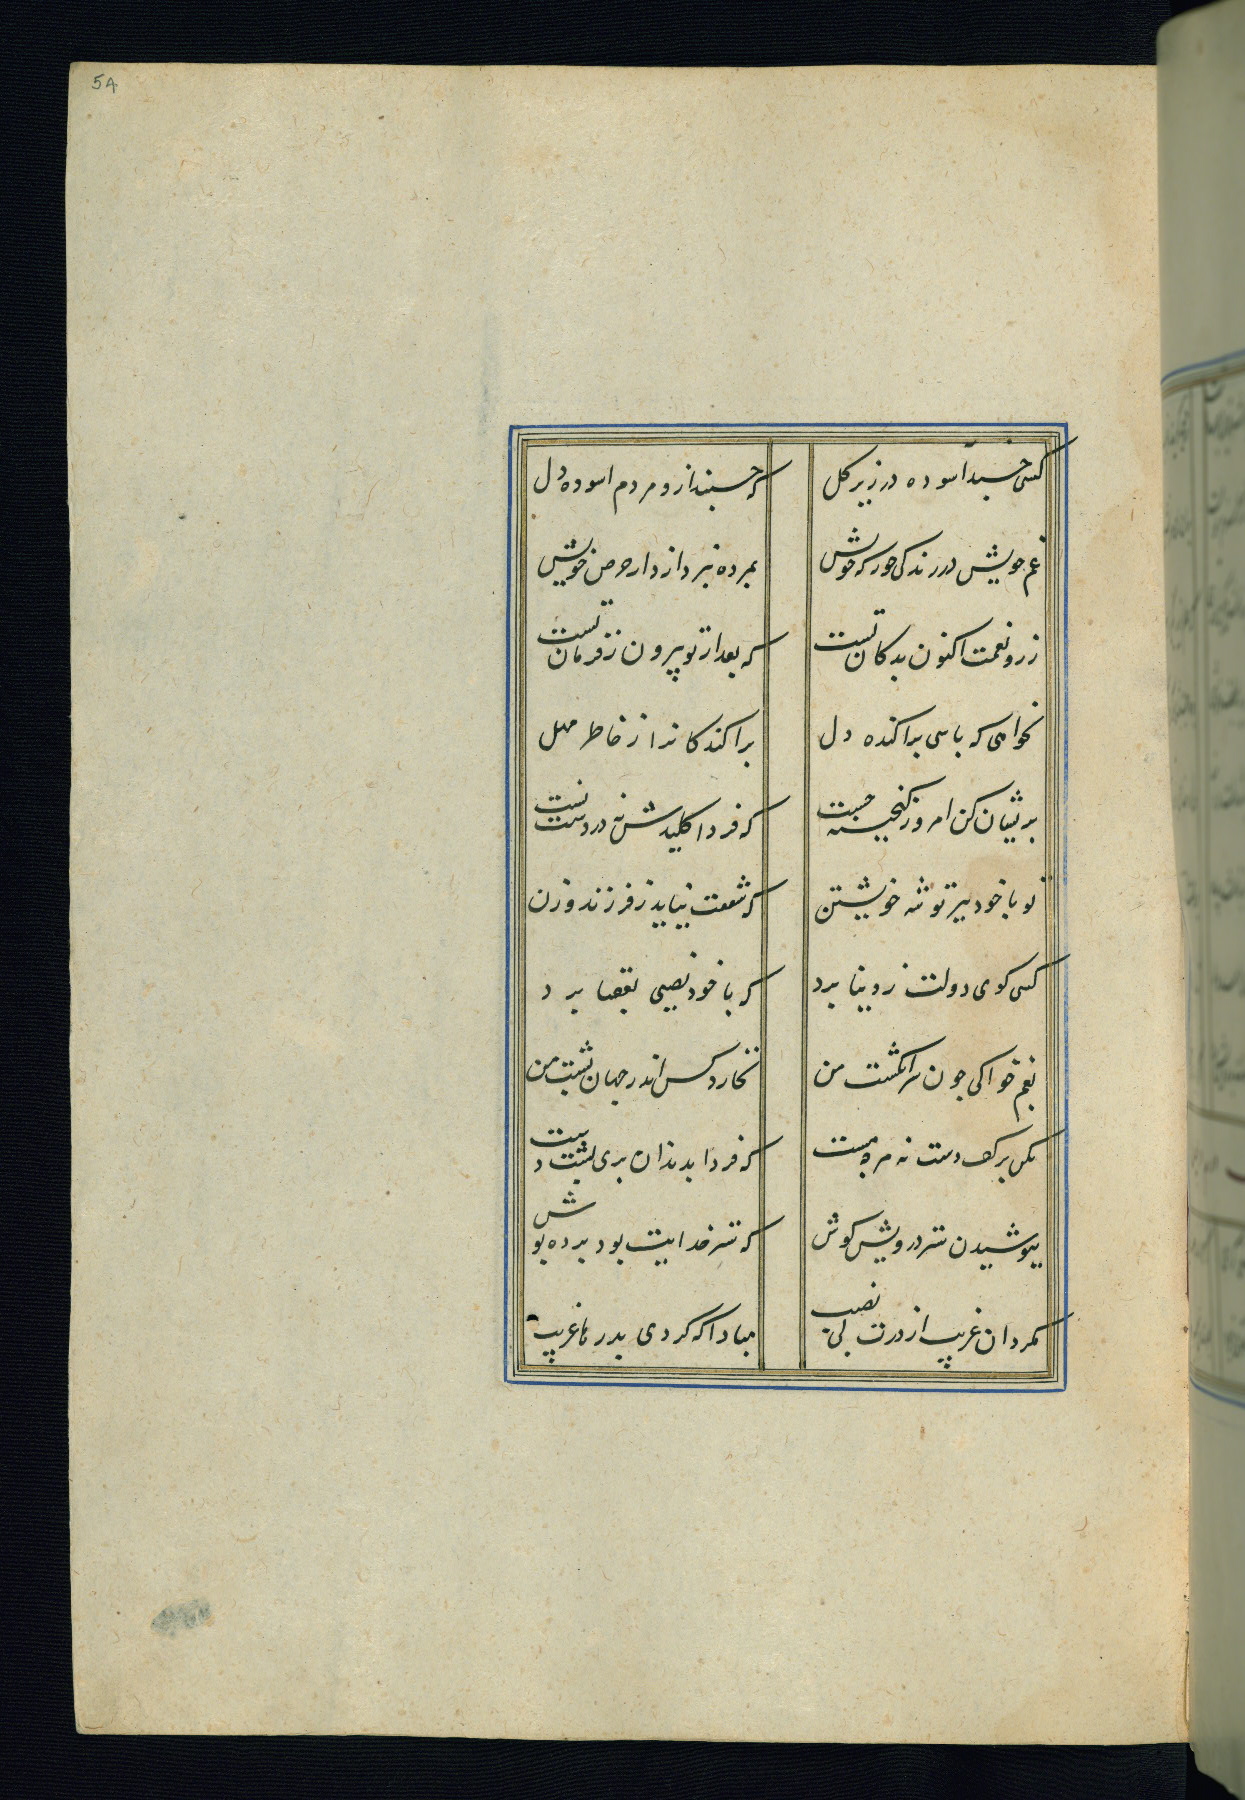 54
کسی خسبد آسوده در زیر کل که خسبند ازو مردم اسوده دل
غم خویش در زندکی خور که خویش بمرده نپردازد از حرص خویش
زر و نعمت اکنون بده کان تست که بعد از تو بیرون ز فرمان تست
نخواهی که باسی پراکنده دل پراکندکانرا ز خاطر مهل
پریشان کن امروز کنجینه چست که فردا کلیدش نه در دست تست
تو با خود ببر توشه خویشتن که شفقت نیاید ز فرزند و زن
کسی کوی دولت ز دنیا برد که با خود نصیبی بعقبا برد
بغمخوارکی چون سر انکشت من نخارد کس اندر جهان پشت من
مکن بر کف دست نه هر چه هست که فردا بدندان بری پشت دست
بپوشیدن ستر درویش کوش که ستر خدایت بود پرده پوش
مکردان غریب از درت بی نصیب مبادا که کردی بدرها غریب